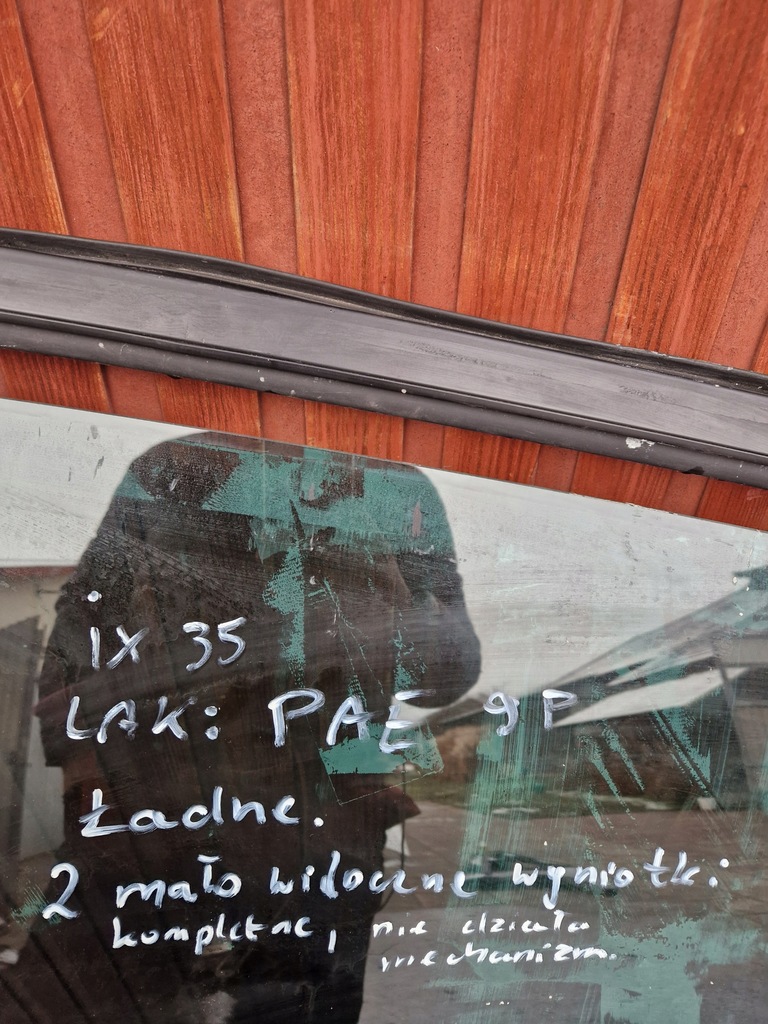 ix 35
LAK: PAE 9P
Ładne.
2 mało widoczne wgniotki
kompletne, nie działa
mechanizm.